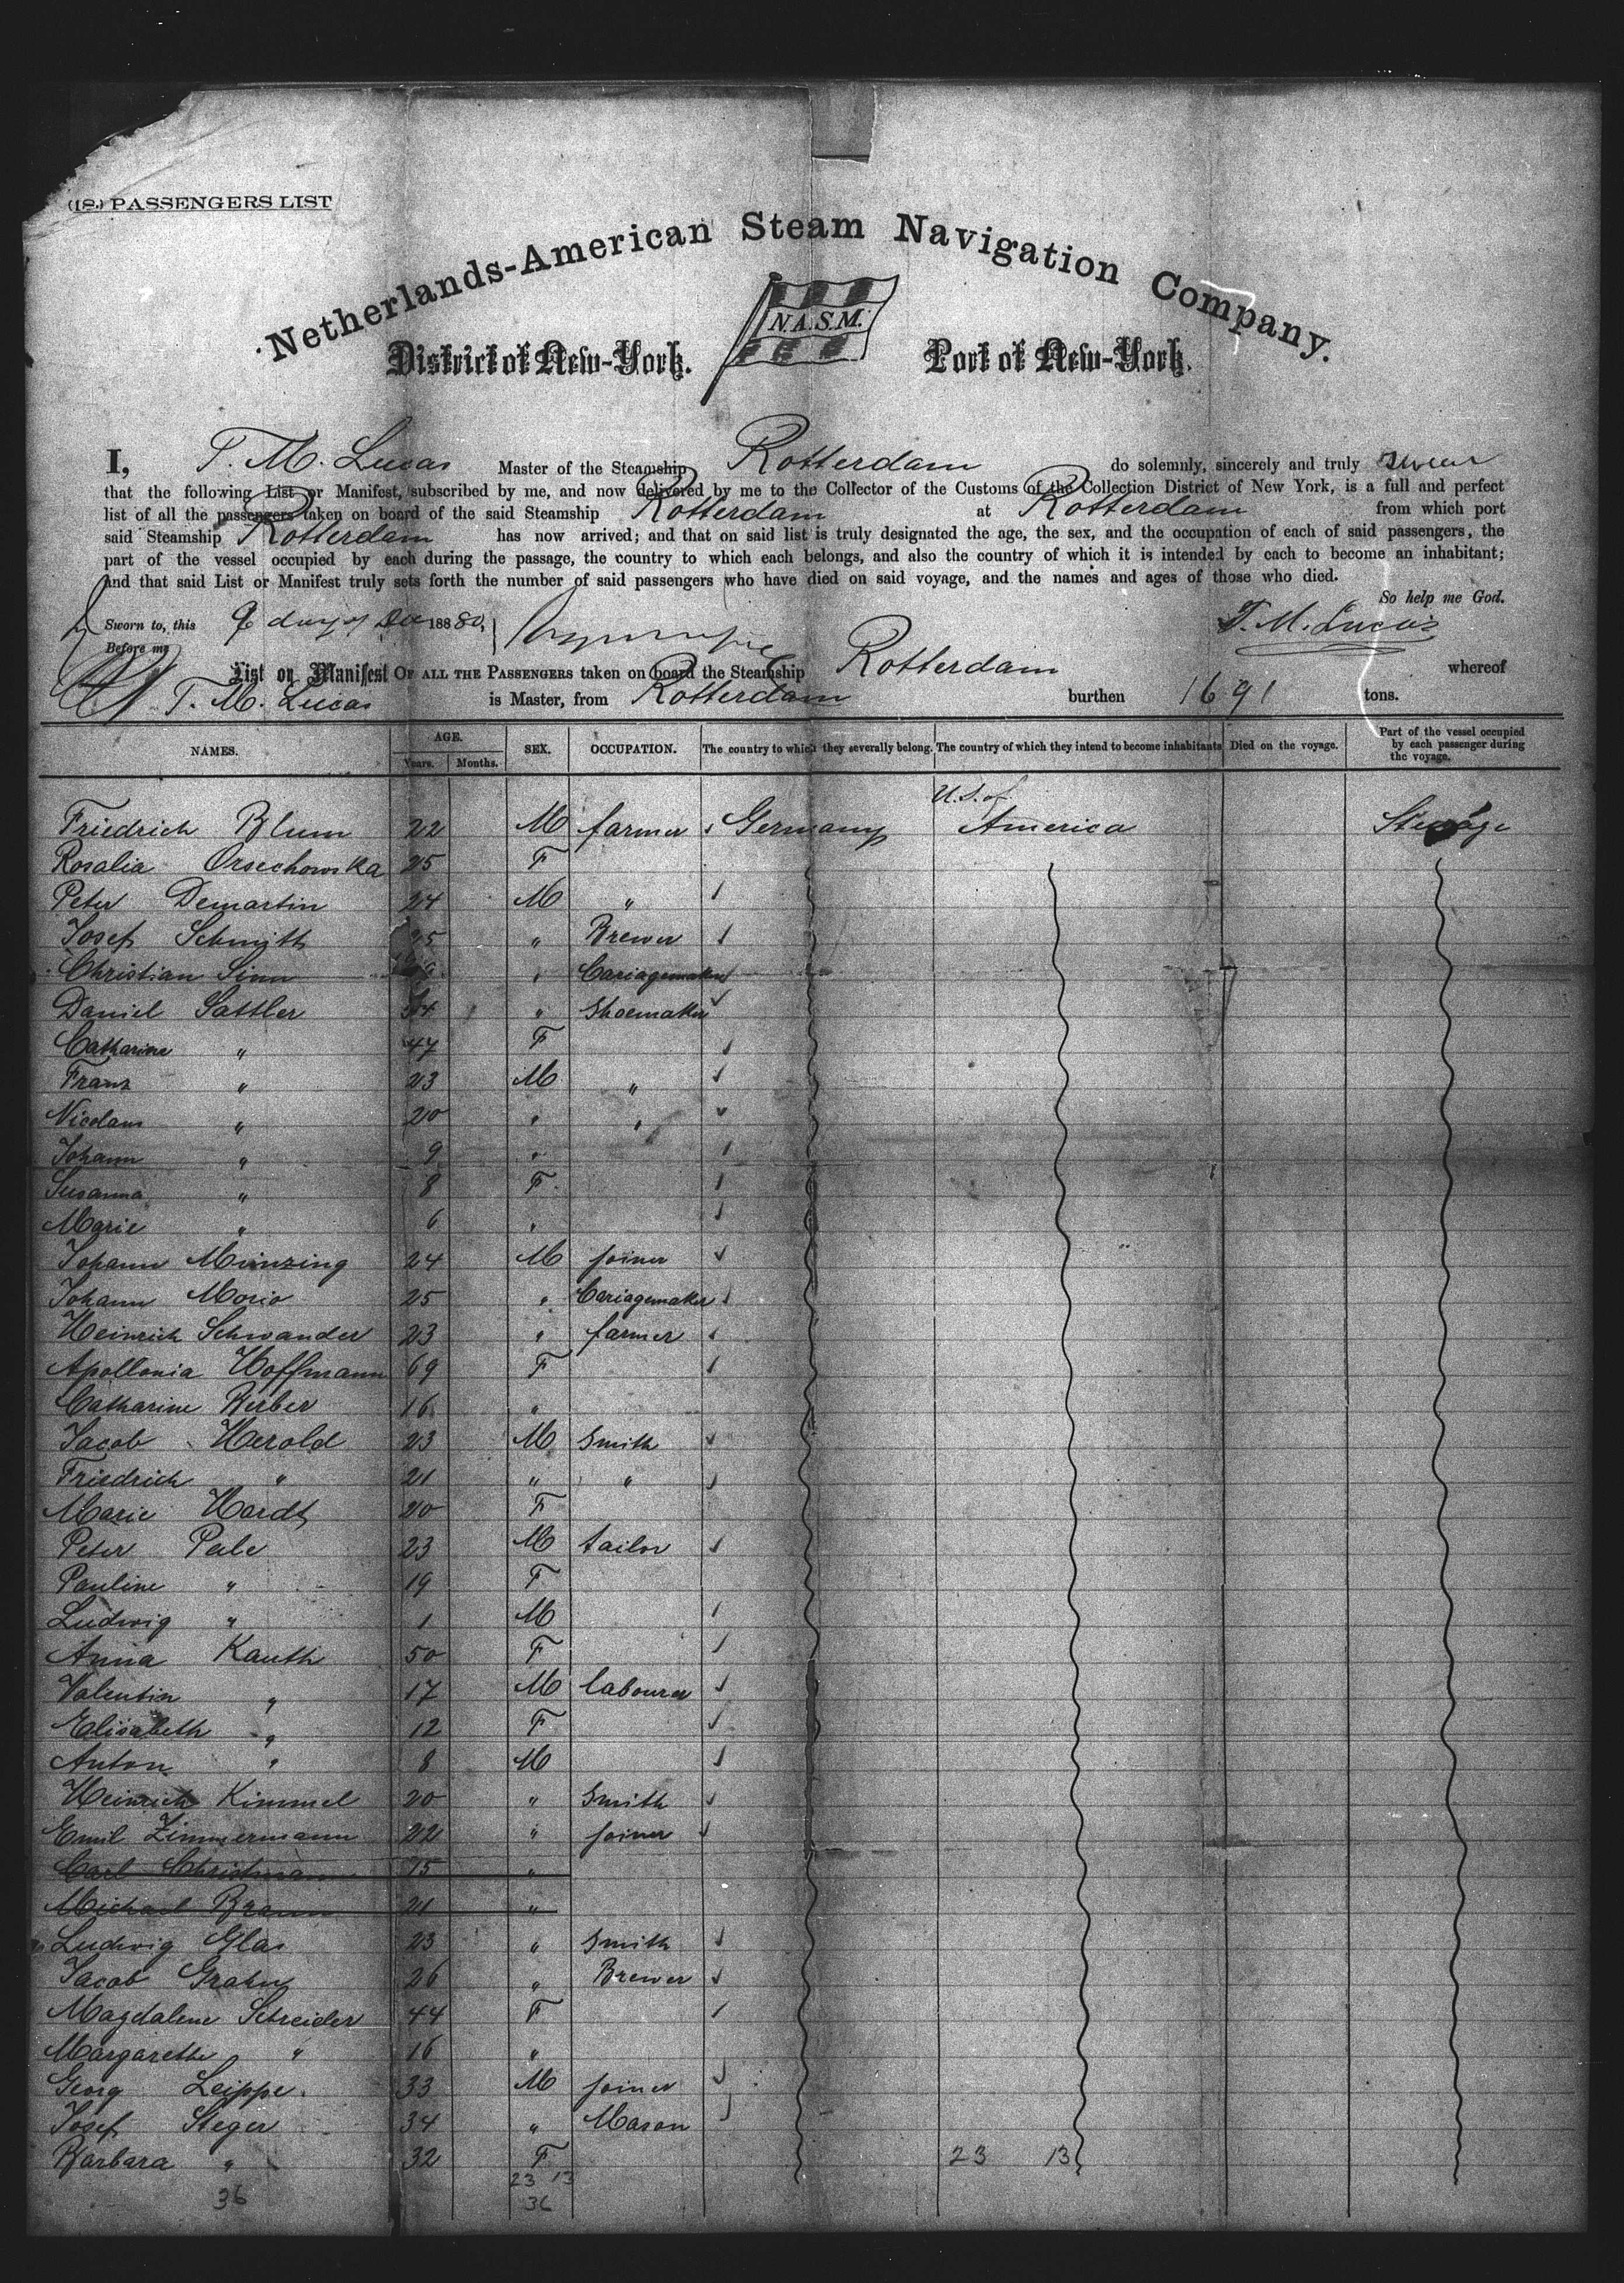 (18.) PASSENGERS LIST
Netherlands-American Steam Navigation Company.
N.A.S.M.
District of New-York. Port of New-York.
I, T. M. Lucas Master of the Steamship Rotterdam do solemnly, sincerely and truly swear
that the following List or Manifest, subscribed by me, and now delivered by me to the Collector of the Customs of the Collection District of New York, is a full and perfect
list of all the passengers taken on board of the said Steamship Rotterdam at Rotterdam from which port
said Steamship Rotterdam has now arrived; and that on said list is truly designated the age, the sex, and the occupation of each of said passengers, the
part of the vessel occupied by each during the passage, the country to which each belongs, and also the country of which it is intended by each to become an inhabitant;
and that said List or Manifest truly sets forth the number of said passengers who have died on said voyage, and the names and ages of those who died.
So help me God.
Sworn to, this 9 day of Dec 188 80, T. M. Lucas
Before me
List or Manifest OF ALL THE PASSENGERS taken on board the Steamship Rotterdam whereof
T. M. Lucas is Master, from Rotterdam burthen 1691 tons.
NAMES. AGE. Years. Months. SEX. OCCUPATION. The country to which they severally belong. The country of which they intend to become inhabitants Died on the voyage. Part of the vessel occupied by each passenger during the voyage.
U. S. of
Friedrich Blum 22 M farmer Germany America Steerage
Rosalia Orsechowska 25 F
Peter Demartin 24 M "
Josef Schmitt 25 " Brewer
Christian Sinn " Cariagemaker
Daniel Sattler 54 " Shoemaker
Catharine " 47 F
Franz " 23 M "
Nicolaus " 20 " "
Johann " 9 "
Susanna " 8 F
Marie " 6 "
Johann Munzing 24 M joiner
Johann Morio 25 " Cariagemaker
Heinrich Schwander 23 " farmer
Apollonia Hoffmann 69 F
Catharine Berber 16 "
Jacob Herold 23 M Smith
Friedrich " 21 " "
Marie Hardt 20 F
Peter Pale 23 M tailor
Pauline " 19 F
Ludwig " 1 M
Anna Kauth 50 F
Valentin " 17 M labourer
Elisabeth " 12 F
Anton " 8 M
Heinrich Kimmel 20 " Smith
Emil Zimmermann 22 " joiner
Carl Christmann 15 "
Michael Braun 21 "
Ludwig Glas 23 " Smith
Jacob Grahn 26 " Brewer
Magdalene Schreider 44 F
Margarethe " 16 "
Georg Leippe 33 M joiner
Josef Steger 34 " Mason
Barbara " 32 F 23 13
23 13
36 36